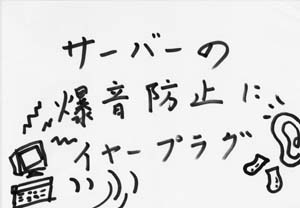 サーバーの
爆音防止に
イヤープラグ